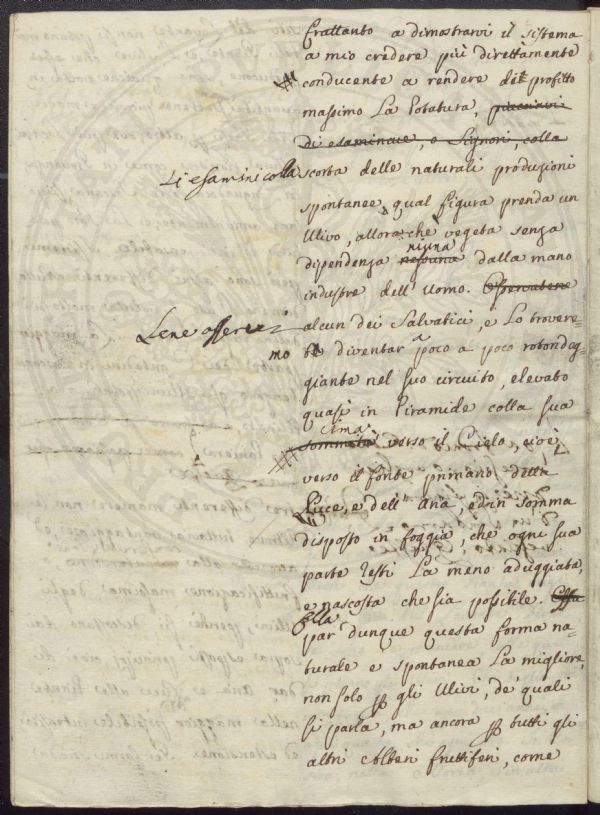 Frattanto a dimostrarvi il sistema
a mio credere più direttamente
conducente a rendere di profitto
massimo La Potatura,
di esaminare, o Signori, colla
Si esamini colla
scorta delle naturali produzioni
spontanee, qual figura prenda un
Ulivo, allora che vegeta senza
niuna
dipendenza nessuna dalla mano
industre dell'Uomo. Osservatene
alcun dei Salvatici, e Lo trovere-
mo
diventar a poco a poco rotondeg-
giante nel suo circuito, elevato
quasi in Piramide colla sua
cima
sommità verso il Cielo, cioè
verso il fonte primario della
Luce, e dell'Aria, ed in somma
disposto in foggia, che ogni sua
parte resti La meno aduggiata,
e nascosta che sia possibile. Essa
Ella
par dunque questa forma na-
turale e spontanea La migliore,
non solo p gli Ulivi, de' quali
si parla, ma ancora p tutti gli
altri Alberi fruttiferi, come